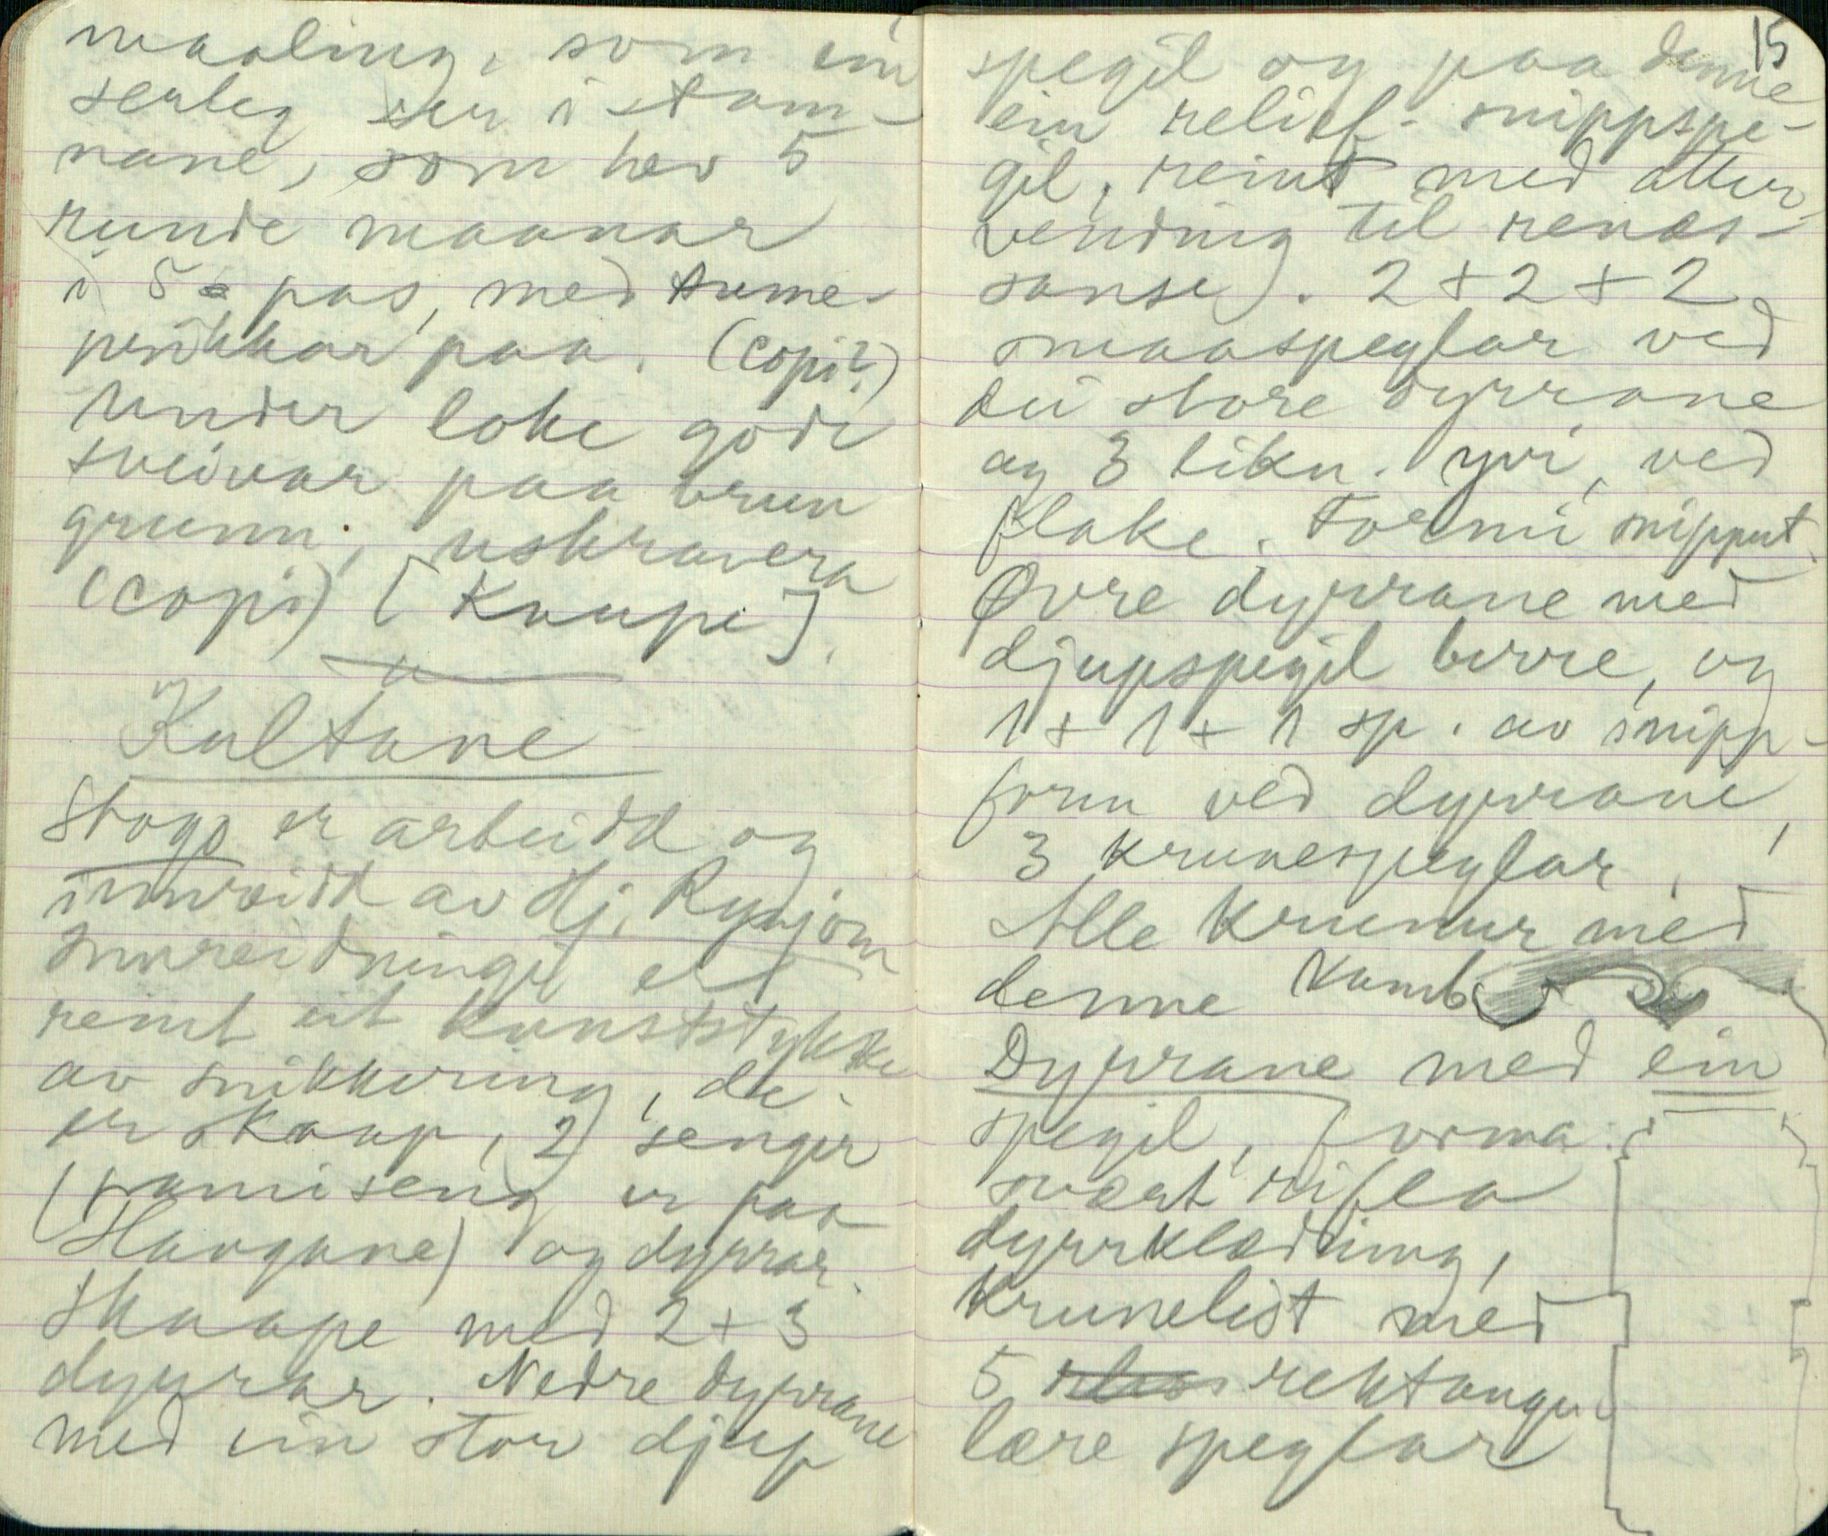 maaling, som ein
serleg ser i stom-
nane, som hev 5
runde maanar
i 5 pas, med tume-
prikkar paa. (copi?)
Under loke gode
sveivar paa brun
grunn, uskravera
(copi) [Kaupe].
Kultane
Stogo er arbeidd og
innreidd av Hj. Rynjom
Innreidningi er
reint eit kunststykke
av snikkering, de
er skaap, 2 senger
(ramiseng er paa
Haugane) og dyrrar.
Skaape med 2+3
dyrrar. Nedre dyrrane
med ein stor djup
15
spegil og paa denne
ein relief-snippspe-
gil, reint med atter-
vending til renæs-
sanse). 2+2+2
smaaspeglar ved
dei store dyrrane
og 3 likn. yvi, ved
flake. Formi snipput.
Øvre dyrrane med
djupspegil berre, og
1+1+1 sp. av snipp-
form ved dyrrane,
3 krunespeglar.
Alle krunur med
denne kamb
Dyrrane med ein
spegil, forma:
svært rifla
dyrrklædning,
krunelist med
5 rektangu-
lære speglar